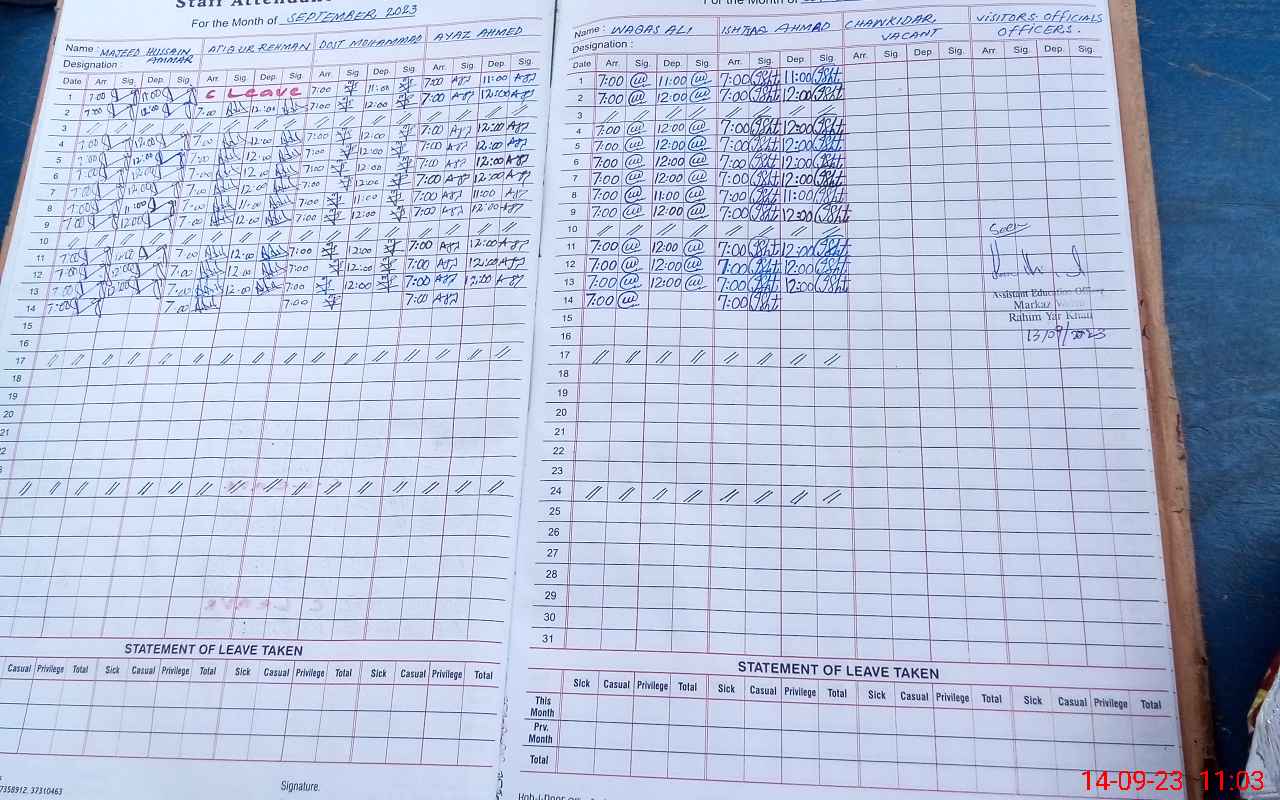 Staff Attendan
For the Month of SEPTEMBER 2023
Name: MAJEED HUSSAIN AMMAR ATIQ UR REHMAN DOST MOHAMMAD AYAZ AHMED
Designation:
Date Arr. Sig. Dep. Sig. Arr. Sig. Dep. Sig. Arr. Sig. Dep. Sig. Arr. Sig. Dep. Sig.
1 7:00 11:00 C Leave 7:00 11:00 7:00 11:00
2 7:00 12:00 7:00 12:00 7:00 12:00 7:00 12:00
3 // // // // // // // // // // // // // // // //
4 7:00 12:00 7:00 12:00 7:00 12:00 7:00 12:00
5 7:00 12:00 7:00 12:00 7:00 12:00 7:00 12:00
6 7:00 12:00 7:00 12:00 7:00 12:00 7:00 12:00
7 7:00 12:00 7:00 12:00 7:00 12:00 7:00 12:00
8 7:00 11:00 7:00 11:00 7:00 11:00 7:00 11:00
9 7:00 12:00 7:00 12:00 7:00 12:00 7:00 12:00
10 // // // // // // // // // // // // // // // //
11 7:00 12:00 7:00 12:00 7:00 12:00 7:00 12:00
12 7:00 12:00 7:00 12:00 7:00 12:00 7:00 12:00
13 7:00 12:00 7:00 12:00 7:00 12:00 7:00 12:00
14 7:00 7:00 7:00 7:00
15
16
17 // // // // // // // // // // // // // // // //
18
19
20
21
22
// // // // // // // // // // // // // // // //
STATEMENT OF LEAVE TAKEN
Casual Privilege Total Sick Casual Privilege Total Sick Casual Privilege Total Sick Casual Privilege Total
7358912, 37310463
Signature.
For the Month of
Name: WAQAS ALI ISHTIAQ AHMAD CHAWKIDAR, VACANT VISITORS OFFICIALS OFFICERS.
Designation:
Date Arr. Sig. Dep. Sig. Arr. Sig. Dep. Sig. Arr. Sig. Dep. Sig. Arr. Sig. Dep. Sig.
1 7:00 11:00 7:00 Isht 11:00 Isht
2 7:00 12:00 7:00 Isht 12:00 Isht
3 // // // // // // // //
4 7:00 12:00 7:00 Isht 12:00 Isht
5 7:00 12:00 7:00 Isht 12:00 Isht
6 7:00 12:00 7:00 Isht 12:00 Isht
7 7:00 12:00 7:00 Isht 12:00 Isht
8 7:00 11:00 7:00 Isht 11:00 Isht
9 7:00 12:00 7:00 Isht 12:00 Isht
10 // // // // // // // //
11 7:00 12:00 7:00 Isht 12:00 Isht
12 7:00 12:00 7:00 Isht 12:00 Isht
13 7:00 12:00 7:00 Isht 12:00 Isht
14 7:00 7:00 Isht
15
16
17 // // // // // // // //
18
19
20
21
22
23
24 // // // // // // // //
25
26
27
28
29
30
31
Seen
Assistant Education
Markaz
Rahim Yar Khan
13/09/2023
STATEMENT OF LEAVE TAKEN
Sick Casual Privilege Total Sick Casual Privilege Total Sick Casual Privilege Total Sick Casual Privilege Total
This Month
Prv. Month
Total
14-09-23 11:03